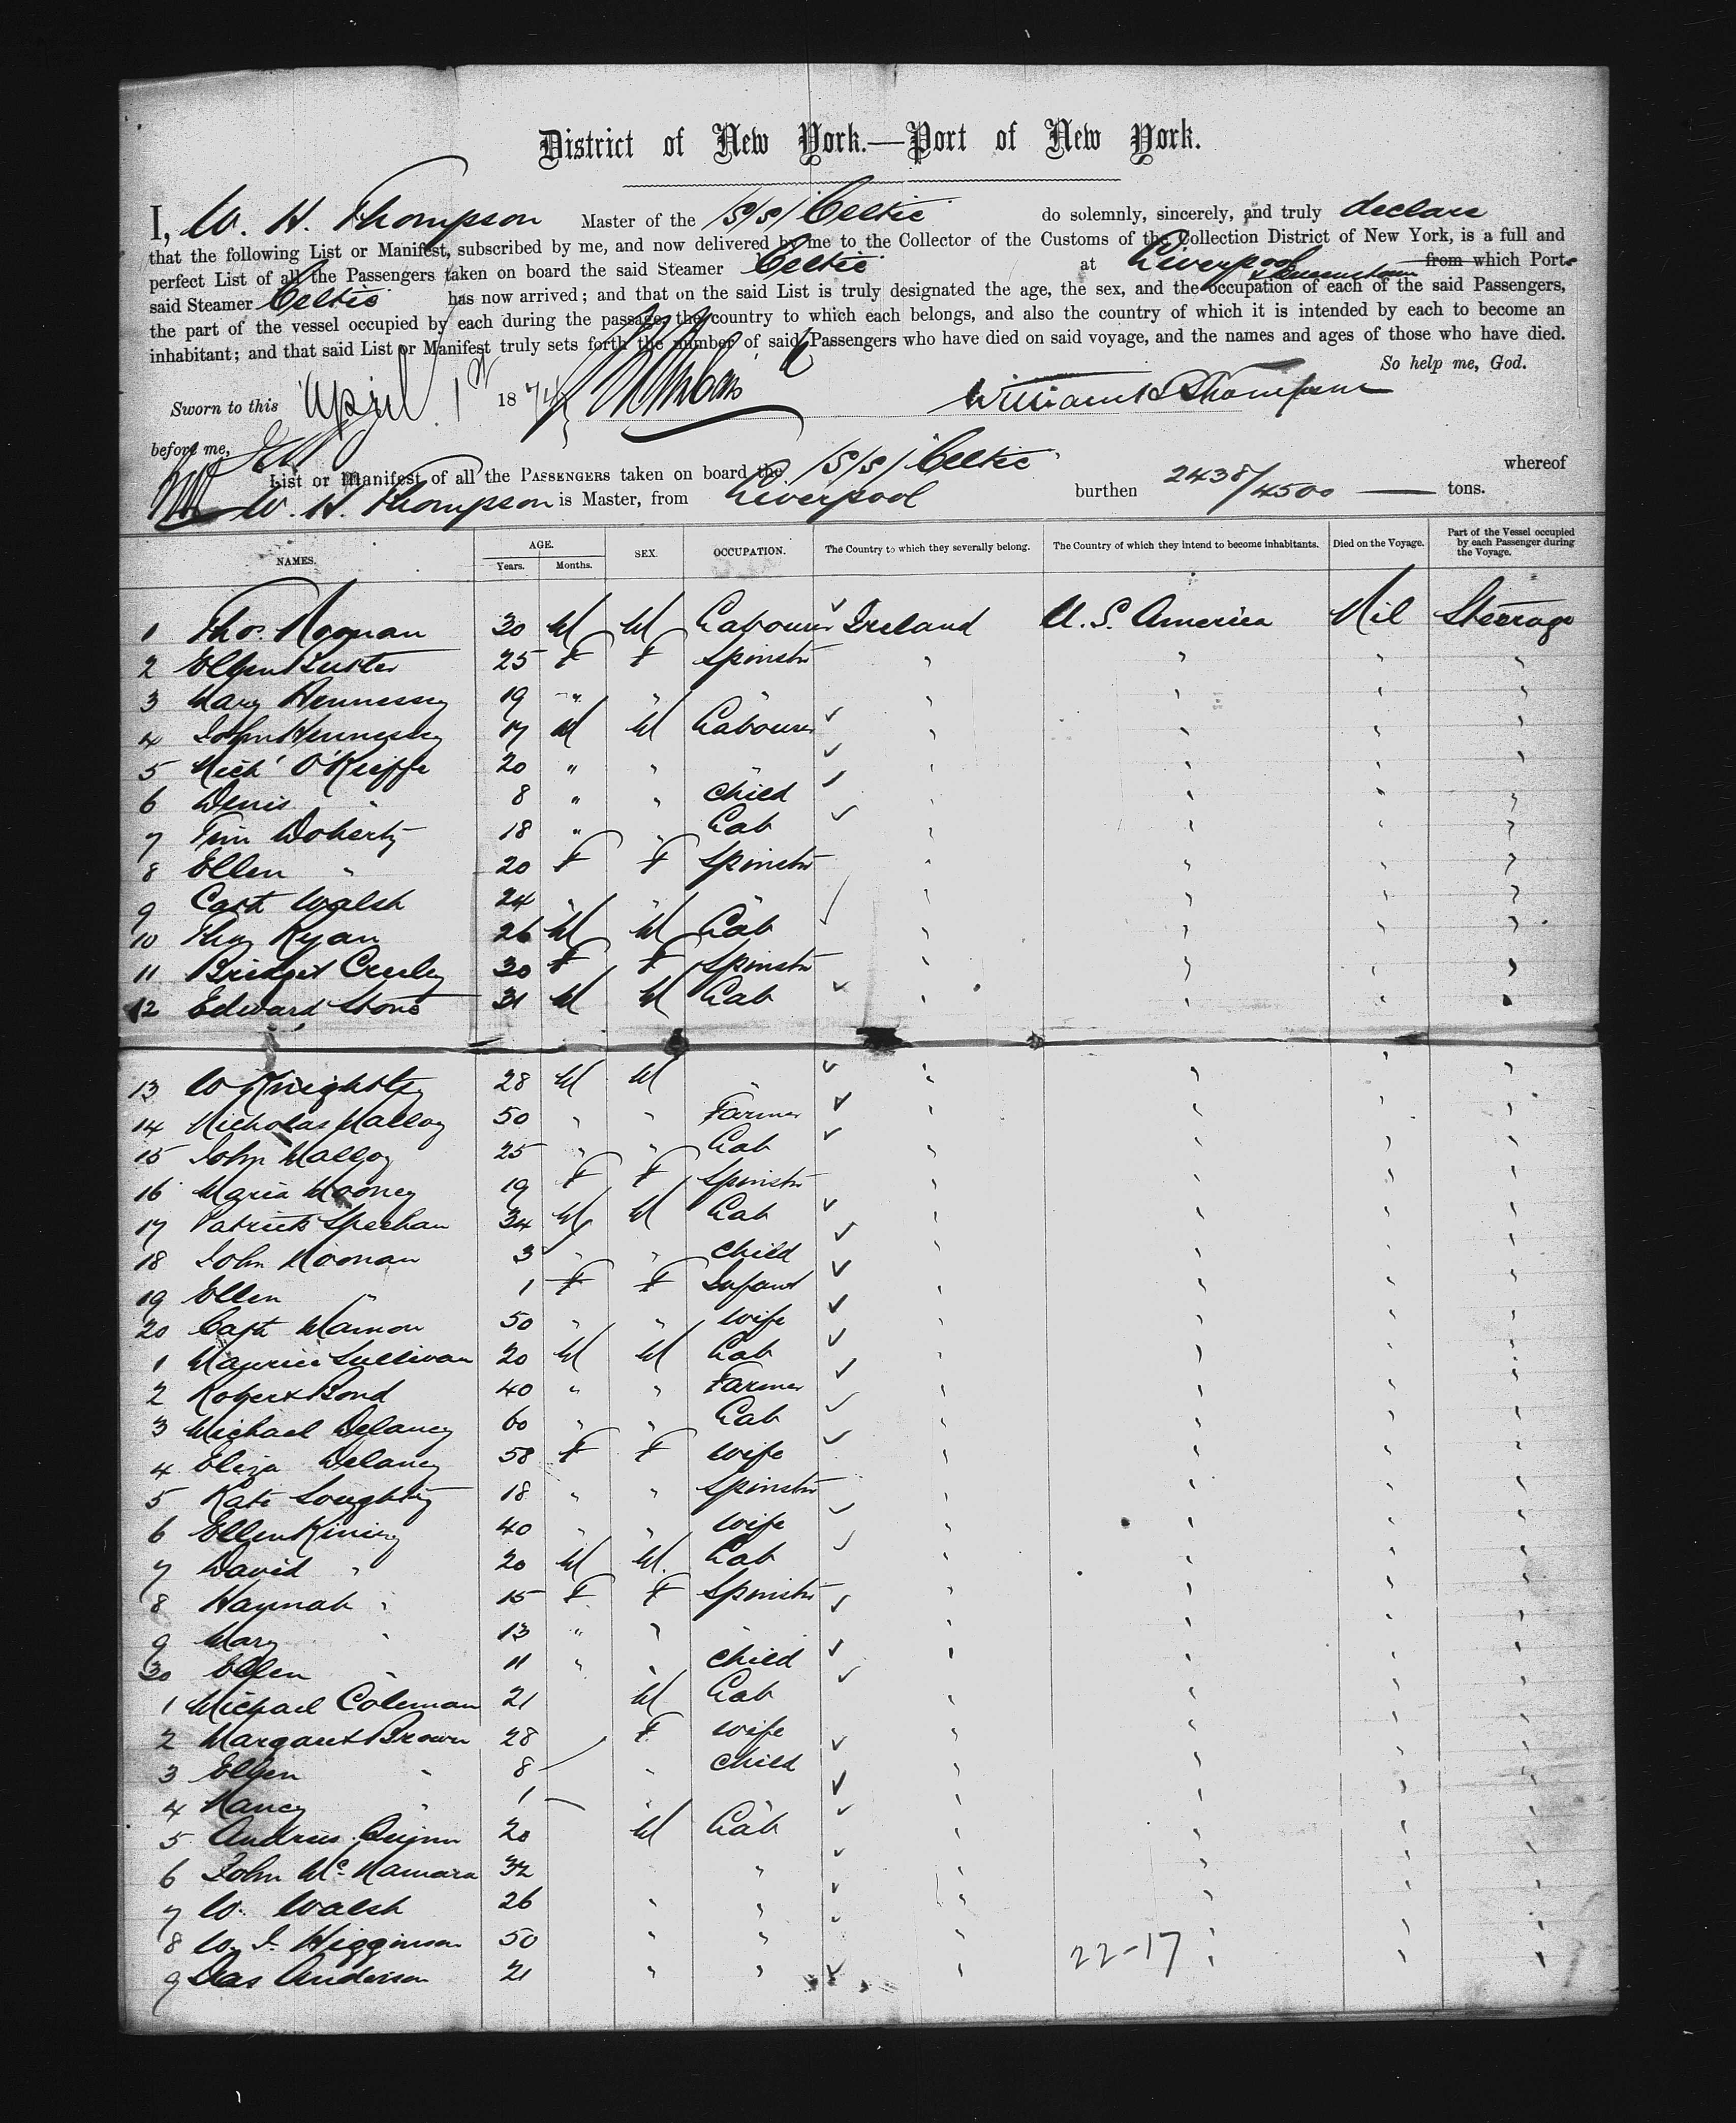 District of New York.—Port of New York.
I, W. H. Thompson Master of the /S/S/ Celtic do solemnly, sincerely, and truly declare
that the following List or Manifest, subscribed by me, and now delivered by me to the Collector of the Customs of the Collection District of New York, is a full and
perfect List of all the Passengers taken on board the said Steamer Celtic at Liverpool & Queenstown from which Port
said Steamer Celtic has now arrived; and that on the said List is truly designated the age, the sex, and the occupation of each of the said Passengers,
the part of the vessel occupied by each during the passage, the country to which each belongs, and also the country of which it is intended by each to become an
inhabitant; and that said List or Manifest truly sets forth the number of said Passengers who have died on said voyage, and the names and ages of those who have died.
So help me, God.
Sworn to this April 1st 1874 William H Thompson
before me,
List or Manifest of all the PASSENGERS taken on board the /S/S/ Celtic whereof
W. H. Thompson is Master, from Liverpool burthen 2438/4500 — tons.
NAMES. AGE. Years. Months. SEX. OCCUPATION. The Country to which they severally belong. The Country of which they intend to become inhabitants. Died on the Voyage. Part of the Vessel occupied by each Passenger during the Voyage.
1 Thos. Noonan 30 M M Labourer Ireland U. S. America Nil Steerage
2 Ellen 25 F F Spinstr " " " "
3 Mary Hennessy 19 " " " " " " "
4 John Hennessy 17 M M Labourer " " " "
5 Mich' O'Keeffe 20 " " " " " " "
6 Denis " 8 " " Child " " " "
7 Tim Doherty 18 " " Lab " " " "
8 Ellen " 20 F F Spinstr " " " "
9 Cath Walsh 24 " " " " " " "
10 Thos Ryan 26 M M Lab " " " "
11 Bridget 30 F F Spinstr " " " "
12 Edward Stone 31 M M Lab " " " "
13 W Knightly 28 M M " " " " "
14 Nicholas Malloy 50 " " Farmer " " " "
15 John Malloy 25 " " Lab " " " "
16 Maria Mooney 19 F F Spinstr " " " "
17 Patrick Speehan 34 M M Lab " " " "
18 John Noonan 3 " " Child " " " "
19 Ellen " 1 F F Infant " " " "
20 Cath 50 " " Wife " " " "
1 Maurice Sullivan 20 M M Lab " " " "
2 Robert Bond 40 " " Farmer " " " "
3 Michael Delaney 60 " " Lab " " " "
4 Eliza Delaney 58 F F Wife " " " "
5 Kate 18 " " Spinstr " " " "
6 Ellen 40 " " Wife " " " "
7 David " 20 M M Lab " " " "
8 Hannah " 15 F F Spinstr " " " "
9 Mary " 13 " " " " " " "
30 Ellen " 11 " " Child " " " "
1 Michael Coleman 21 M Lab " " " "
2 Margaret Brown 28 F Wife " " " "
3 Ellen " 8 " Child " " " "
4 Nancy " 1 " " " " " "
5 Andrew Quinn 20 M Lab " " " "
6 John McNamara 32 " " " " " "
7 W. Walsh 26 " " " " " "
8 W. J. Higginson 50 " " " 22-17 " " "
9 Jas Anderson 21 " " " " " "